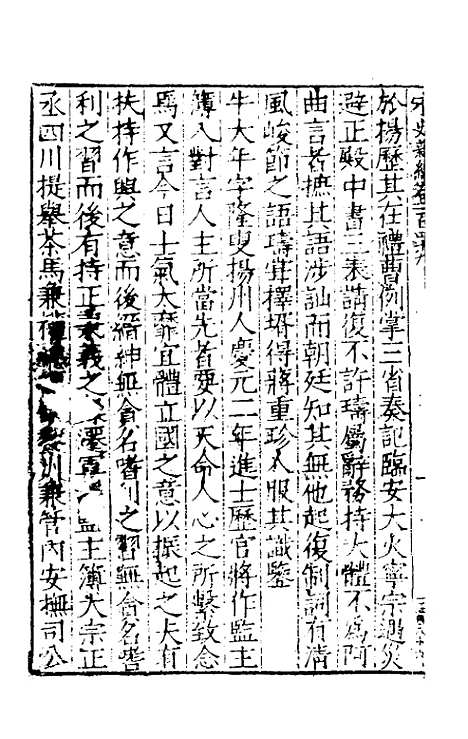 宋史新編卷一百四十九
於揚歷其在禮曹例掌三省奏記臨安大火寧宗遇災
避正殿中書三表請復不許璹屬辭務持大體不為阿
曲言者摭其語涉訕而朝廷知其無他起復制詞有清
風峻節之語璹嘗擇壻得蔣重珍人服其識鑒
牛大年字隆叟揚州人慶元二年進士歷官將作監主
簿入對言人主所當先者要以天命人心之所繫致念
焉又言今日士氣太靡宜體立國之意以振起之夫有
扶持作興之意而後縉紳無貪名嗜利之習無貪名嗜
利之習而後有持正秉義之 遷 監主簿大宗正
丞四川提舉茶馬兼 州兼管內安撫司公